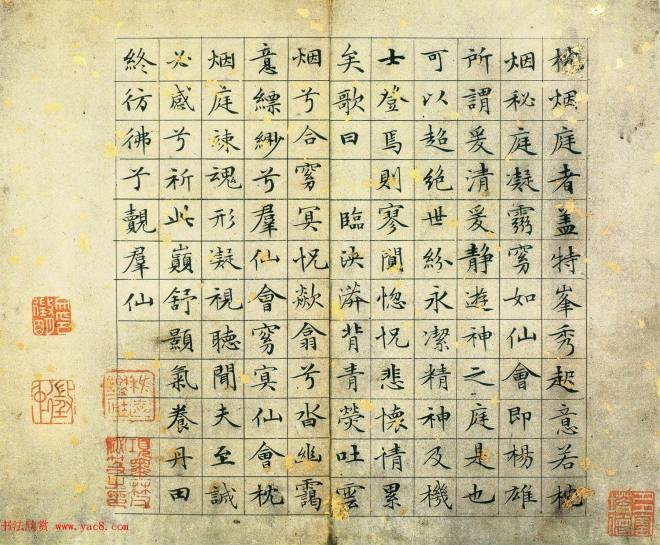 枕烟庭者盖特峯秀起意若枕
烟秘庭凝靈窅如仙會即楊雄
所謂爰清爰静遊神之庭是也
可以超絶世紛永潔精神及機
士登焉則寥闃惚怳悲懷情累
矣歌曰 臨泱漭背青熒吐雲
烟兮合窅冥怳欻翕兮沓幽靄
意縹緲兮羣仙會窅冥仙會枕
烟庭竦魂形凝視聽聞夫至誠
必感兮祈此巔舒顥氣養丹田
終彷彿兮覿羣仙
徵明
书法欣赏 www.yac8.com